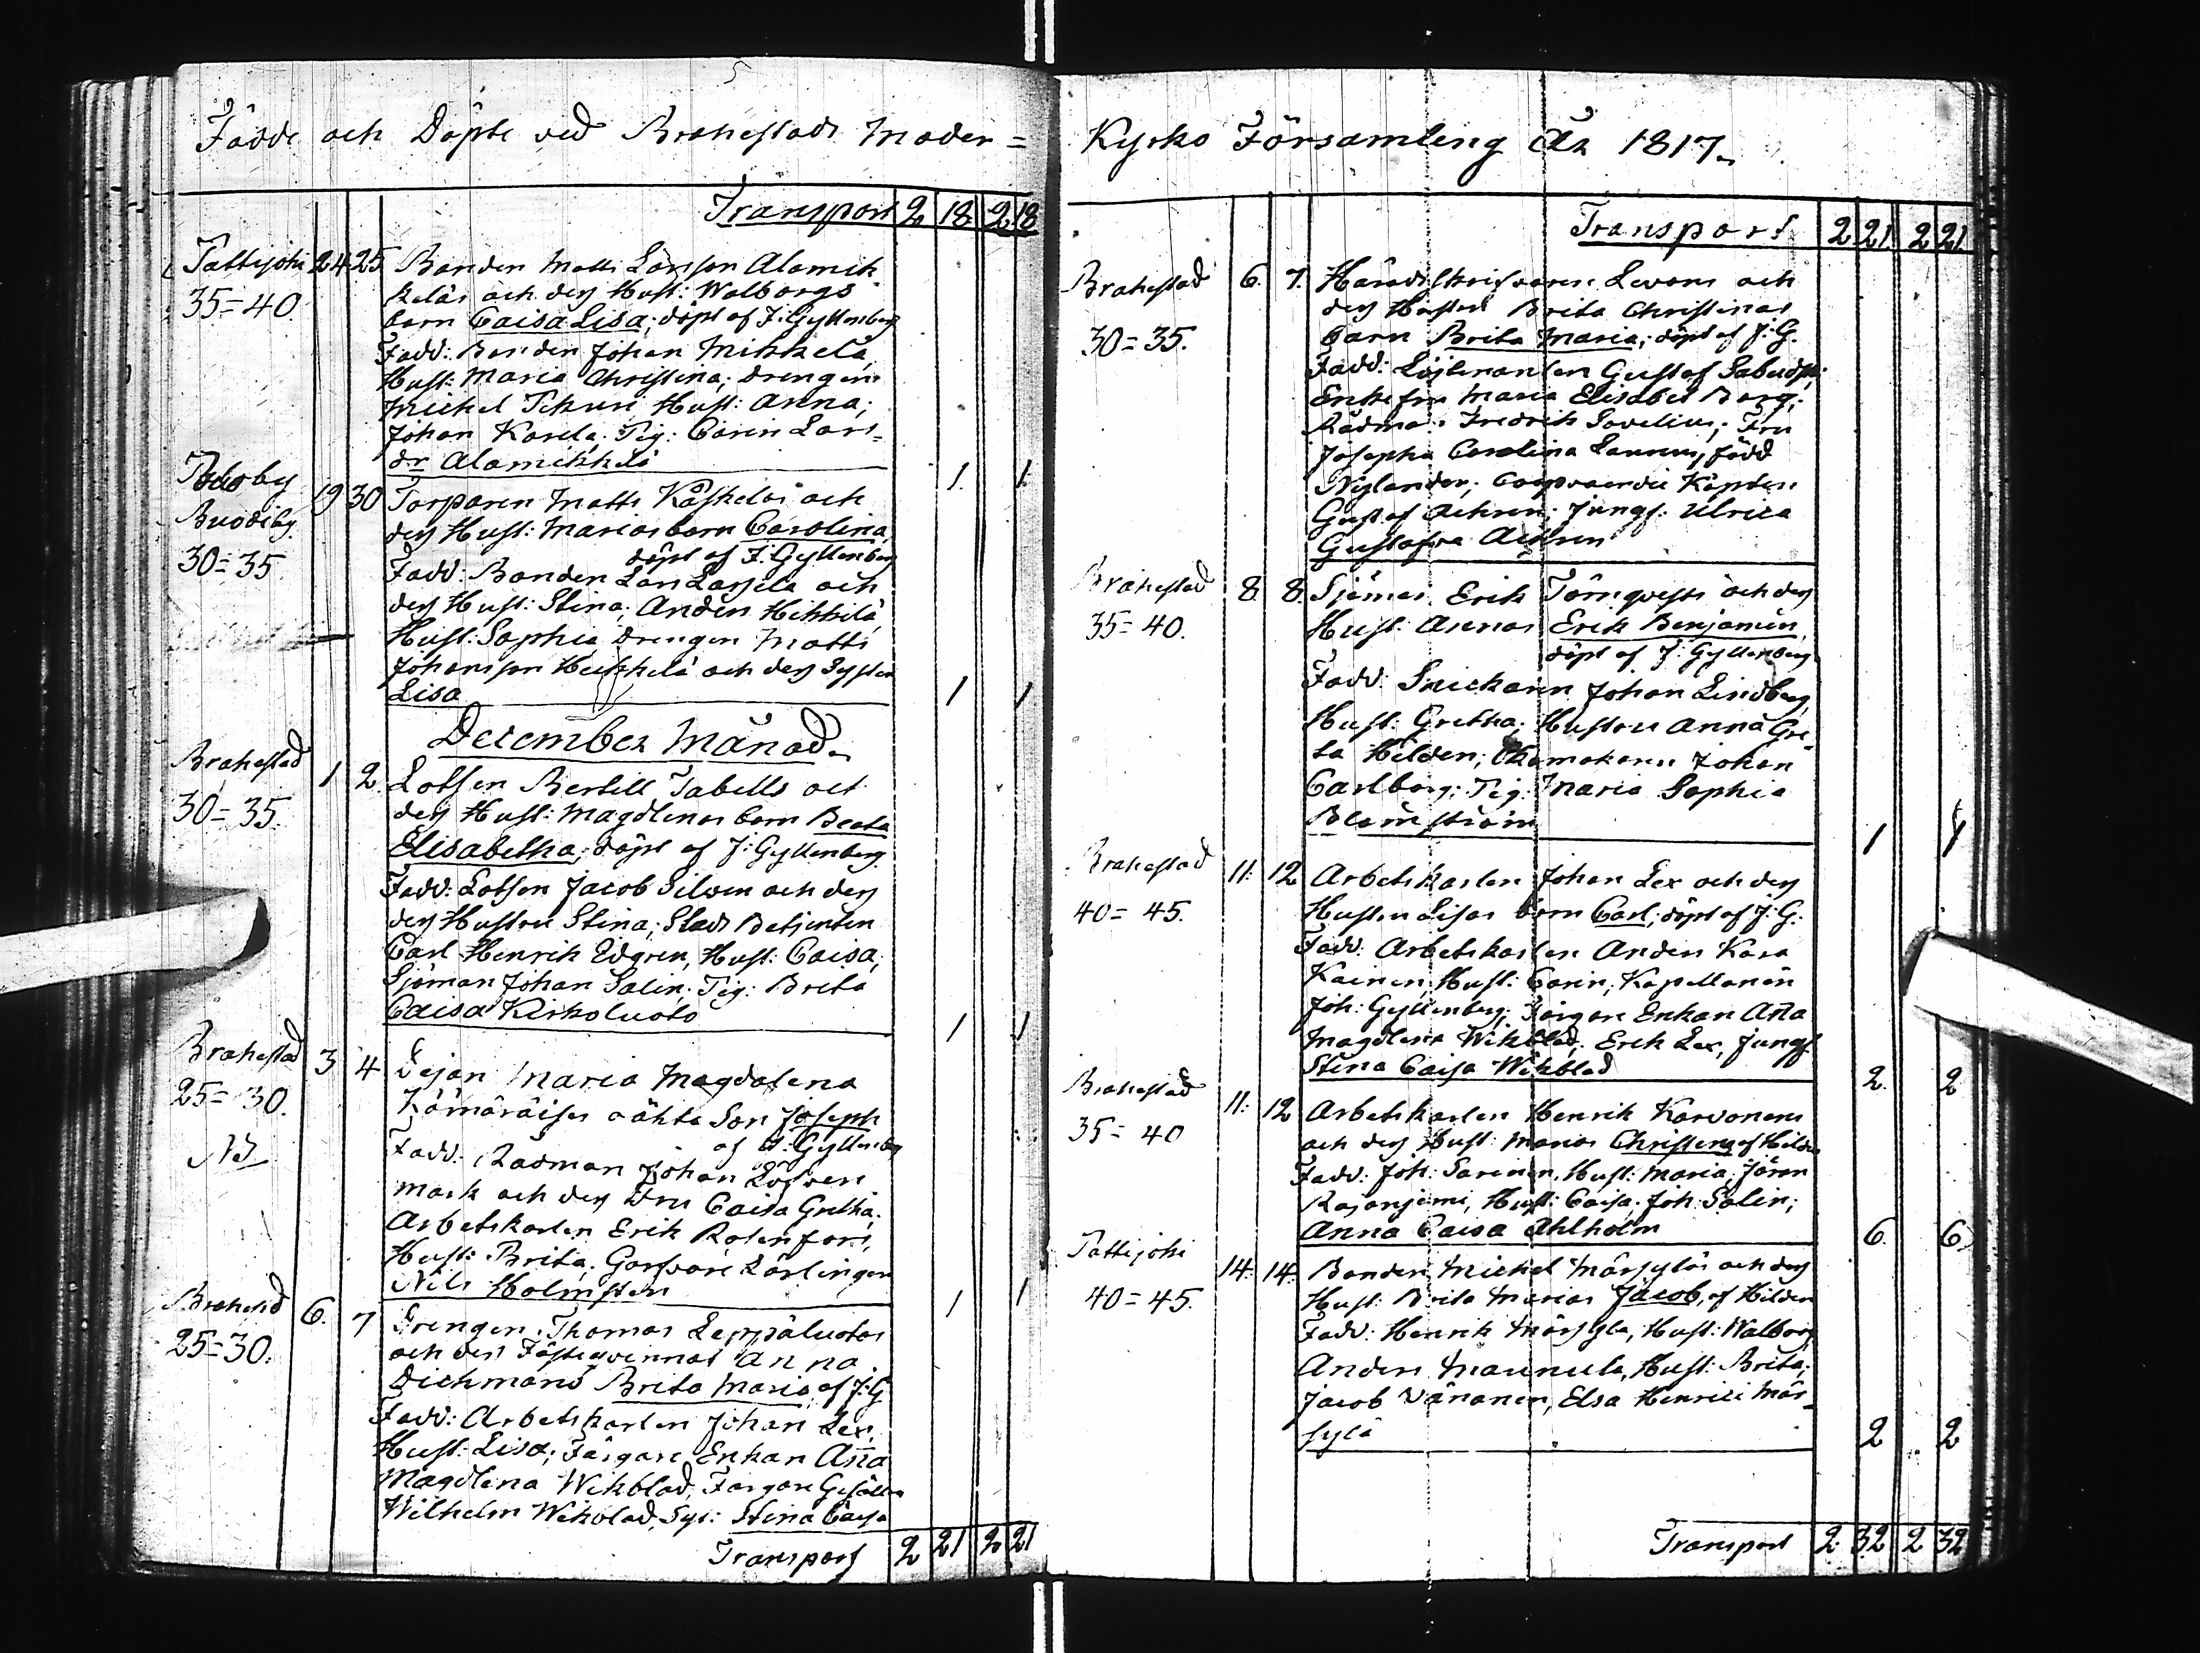 Födde och Döpte ved Brahestads Moder=
Transport 2 18 2 18
Pattijoki 24 25 Bonden Matts Larsson Alamik
35=40 keläs och dess Hust: Walborgs
barn Caisa Lisa; döpt af J: Gyllenberg
Fadd: Bonden Johan Mikkelä
Hust: Maria Christina; Drengen
Michel Hust: Anna;
Johan Karela; Pig: Carin Lars=
dr Alamikkelä 1. 1.
19 30 Torparen Matts och
dess Hust: Marias barn Carolina
30=35 döpt af J: Gyllenberg
Fadd: Bonden Lars Lassila och
dess Hust: Stina; Anders Heikkilä
Hust: Sophia Drengen Matts
Johansson Heikkilä och dess Syster
Lisa 1 1
December Månad
Brahestad 1 2. Lotsen Bertill Tabells och
30=35. dess Hust: Magdlenas barn Beata
Elisabetha; döpt af J: Gyllenberg.
Fadd: Lotsen Jacob Silven och dess
dess Hustru Stina; Stads Betjenten
Carl Henrik Edgren, Hust: Caisa;
Sjöman Johan Salin; Pig: Brita
Caisa Kirkoluoto 1 1
Brahestad 3 4 Pigan Maria Magdalena
25=30. oäkta Son Joseph
af J: Gyllenberg
Fadd: Rådman Johan Löfven
mark och dess Fru Caisa Gretha;
Arbetskarlen Erik Rosenfors,
Hust: Brita; Garfvare Lärlingen
Nils Holmsten 1 1
Brahestad 6. 7 Drengen Thomas Leppäluotos
25=30. och dess Fästeqvinnas Anna
Dichmans Brita Maria, af J: G
Fadd: Arbetskarlen Johan Lex,
Hust: Lisa; Färgare Enkan Anna
Magdlena Wikblad, Färgare Gesällen
Wilhelm Wikblad, Sys: Stina Caisa
Transport 2 21 2 21
Kyrko Församling År 1817.
Transport 2 21 2 21
Brahestad 6. 7. Häradsskrifvaren Levons och
30=35. dess Hustru Brita Christinas
barn Brita Maria; döpt af J: G.
Fadd: Löjtenanten Gustaf
Enkefru Maria Elisabet Borg;
Rådman Fredrik Sovelius; Fru
Josepha Carolina Laurens, född
Nylander; Coopvaerdie Kapten
Gustaf Achren; Jungf: Ulrica
Gustafva Achren
Brahestad 8. 8. Sjöman Erik Törnqvists och dess
35=40. Hust: Annas Erik Benjamin
döpt af J: Gyllenberg
Fadd: Snickaren Johan Lindberg,
Hust: Gretha; Hustru Anna Gre
ta Hilden; Johan
Carlborg; Pig: Maria Sophia
Blomström 1 1
Brahestad 11: 12 Arbetskarlen Johan Lex och dess
40=45. Hustru Lisas barn Carl; döpt af J: G.
Fadd: Arbetskarlen Anders Kara
Kainen, Hust: Carin; Kapellanen
Joh: Gyllenberg; Färgare Enkan Anna
Magdlena Wikblad; Erik Lex, Jungf
Stina Caisa Wikblad 2. 2
Brahestad 11: 12 Arbetskarlen Henrik Karvonens
35=40 och dess Hust: Marias Christina af Hilden
Fadd: Joh: Hust: Maria; Jöran
Rajaniemi, Hust: Caisa; Joh: Salin;
Anna Caisa Ahlholm 6. 6
Pattijoki 14. 14. Bonden Michel Märsyläs och dess
40=45. Hust: Brita Marias Jacob, af Hilden
Fadd: Henrik Märsylä, Hust: Walborg
Anders Maunula, Hust: Brita;
Jacob Vänänen, Elsa Henrici Mär=
sylä 2 2
Transport 2 32 2 32